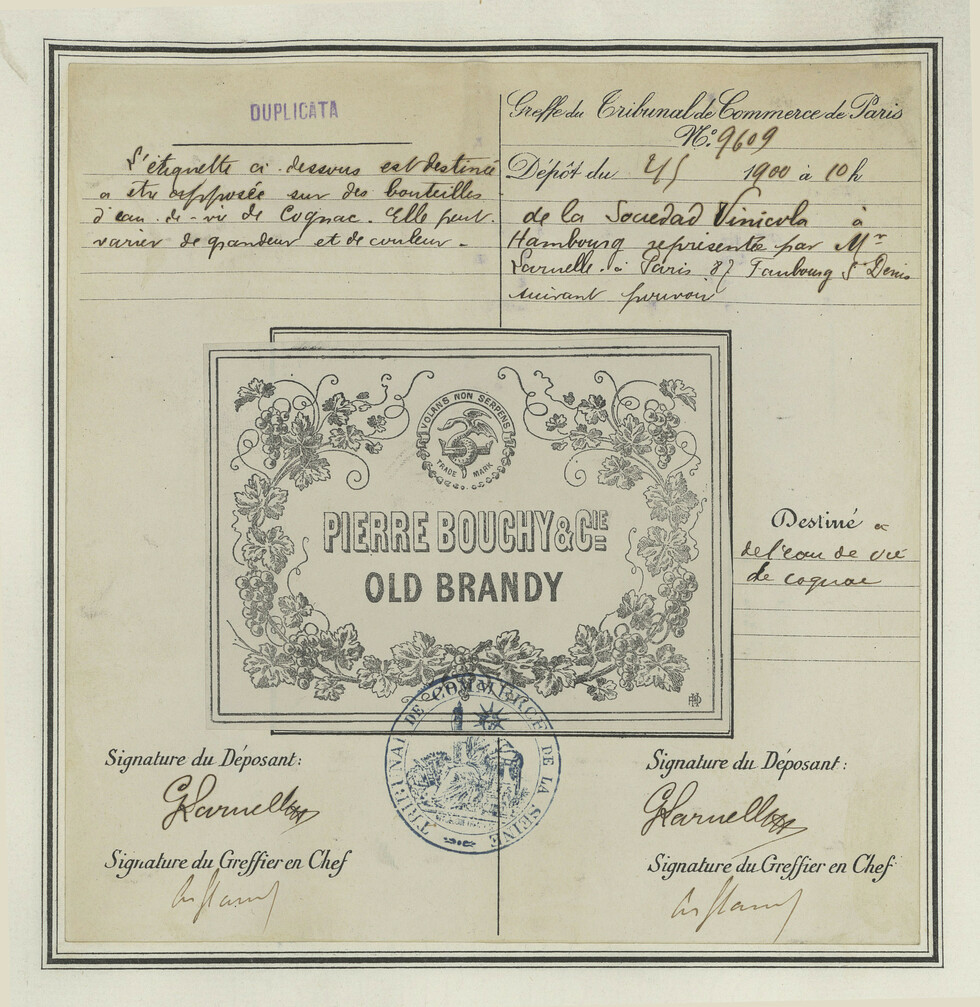 DUPLICATA
L'étiquette ci dessous est destinée
a être apposée sur des bouteilles
d'eau-de-vie de Cognac. Elle peut
varier de grandeur et de couleur -
Greffe du Tribunal de Commerce de Paris
N.º 9609
Dépôt du 2/5 1900 à 10 h
de la Sociedad Vinicola à
Hambourg représentée par Mr
Larnelle à Paris 87 Faubourg St Denis
suivant pouvoir
VOLANS NON SERPENS
TRADE MARK
PIERRE BOUCHY & CIE
OLD BRANDY
Destiné a
de l'eau de vie
de cognac
TRIBUNAL DE COMMERCE DE LA SEINE
Signature du Déposant:
GLarnelle
Signature du Greffier en Chef
Signature du Déposant:
GLarnelle
Signature du Greffier en Chef